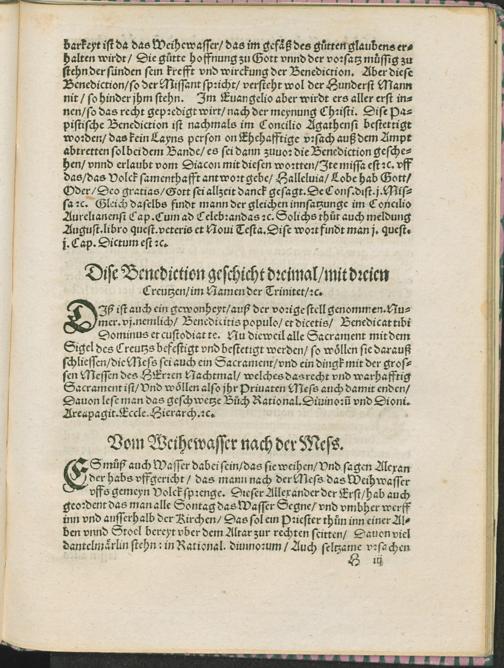 barkeyt ist da das Weihewasser / das im gesäß des gůtten glaubens er-
halten wirdt / Die gůtte hoffnung zu Gott vnnd der vorsatz müssig zu
stehn der sünden sein krefft vnd wirckung der Benediction. Aber diese
Benediction / so der Missant spricht / versteht wol der Hunderst Mann
nit / so hinder jhm stehn. Im Euangelio aber wirdt ers aller erst in-
nen / so das recht gepredigt wirt / nach der meynung Christi. Dise Pa-
pistische Benediction ist nachmals im Concilio Agathensi bestettigt
worden / das kein Layns person on Ehehafftige vrsach auß dem Ampt
abtretten sol bei dem Bande / es sei dann zuuor die Benediction gesche-
hen / vnnd erlaubt vom Diacon mit diesen wortten / Ite missa est ꝛc. vff
das / das Volck samenthafft antwort gebe / Halleluia / Lobe hab Gott /
Oder / Deo gratias / Gott sei allzeit danck gesagt. De Cons. dist. j. Mis-
sa ꝛc. Gleich daselbs findt mann der gleichen innsatzunge im Concilio
Aurelianensi Cap. Cum ad Celebrandas ꝛc. Solichs thůt auch meldung
August. libro quest. veteris et Noui Testa. Dise wort findt man j. quest.
j. Cap. Dictum est ꝛc.
Dise Benediction geschicht dreimal / mit dreien
Creutzen / im Namen der Trinitet / ꝛc.
Diß ist auch ein gewonheyt / auß der vorige stell genommen. Nu-
mer. vj. nemlich / Benedicitis populo / et dicetis / Benedicat tibi
Dominus et custodiat te. Nu dieweil alle Sacrament mit dem
Sigel des Creutzs befestigt vnd bestetigt werden / so wöllen sie darauß
schliessen / die Mess sei auch ein Sacrament / vnd ein dingk mit der gros-
sen Messen des HErren Nachtmal / welches das recht vnd warhafftig
Sacrament ist / Vnd wöllen also jhr Priuaten Mess auch damit enden /
Dauon lese man das geschwetze Bůch Rational. Diuinorū vnd Dioni.
Areapagit. Eccle. Hierarch. ꝛc.
Vom Weihewasser nach der Mess.
ES můß auch Wasser dabei sein / das sie weihen / Vnd sagen Alexan
der habs vffgericht / das mann nach der Mess das Weihwasser
vffs gemeyn Volck sprenge. Dieser Allexander der Erst / hab auch
geordent das man alle Sontag das Wasser Segne / vnd vmbher werff
inn vnd ausserhalb der Kirchen / Das sol ein Priester thůn inn einer Al-
ben vnnd Stoel bereyt vber dem Altar zur rechten seitten / Dauon viel
dantelmärlin stehn: in Rational. diuinorum / Auch seltzame vrsachen
B iij